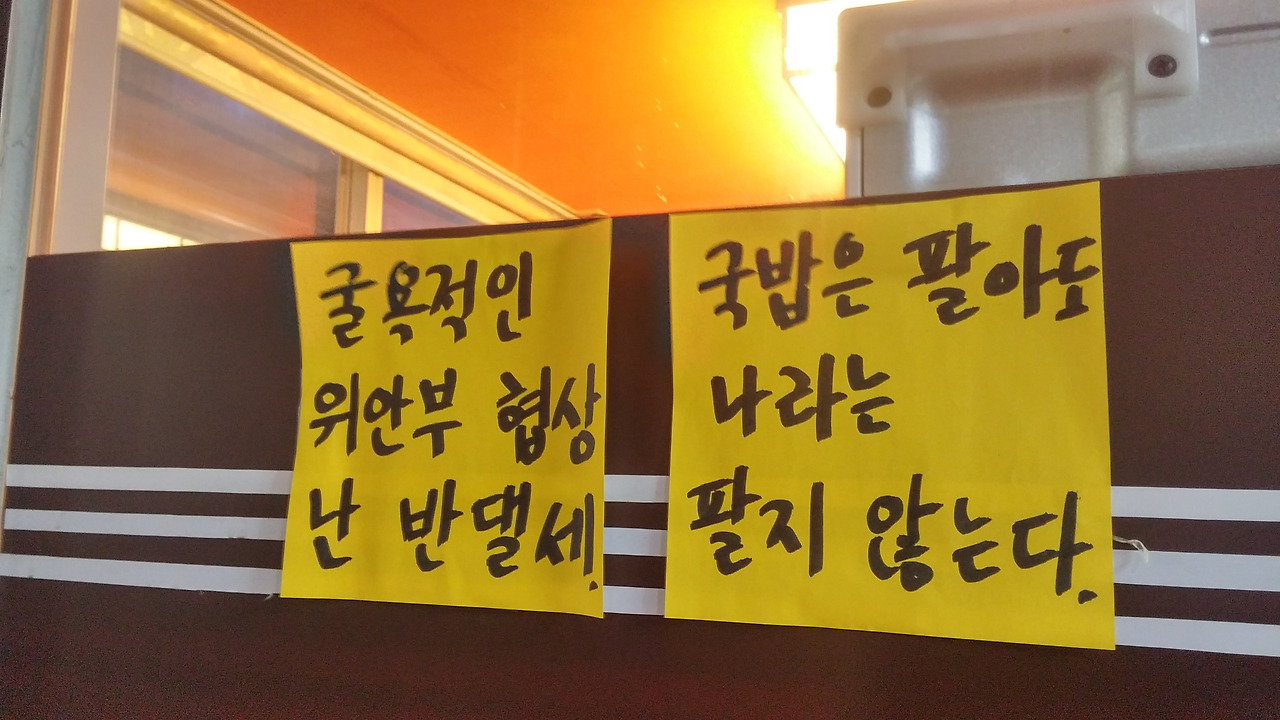 굴욕적인
위안부 협상
난 반댈세.
국밥은 팔아도
나라는
팔지 않는다.